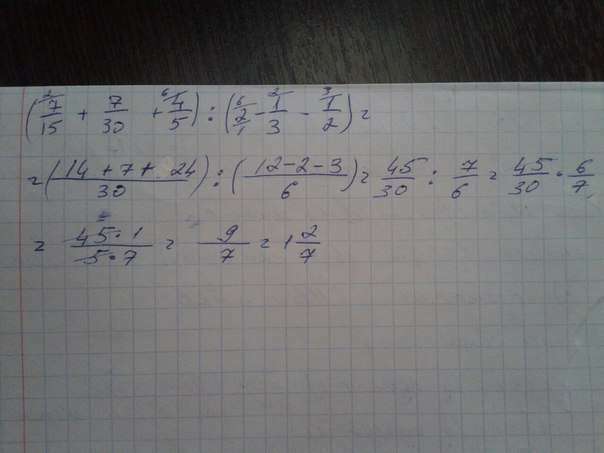 (7/15 + 7/30 + 4/5) : (2/1 - 1/3 - 1/2) =
= (14 + 7 + 24 / 30) : (12 - 2 - 3 / 6) = 45/30 : 7/6 = 45/30 · 6/7
= 45 · 1 / 5 · 7 = 9/7 = 1 2/7